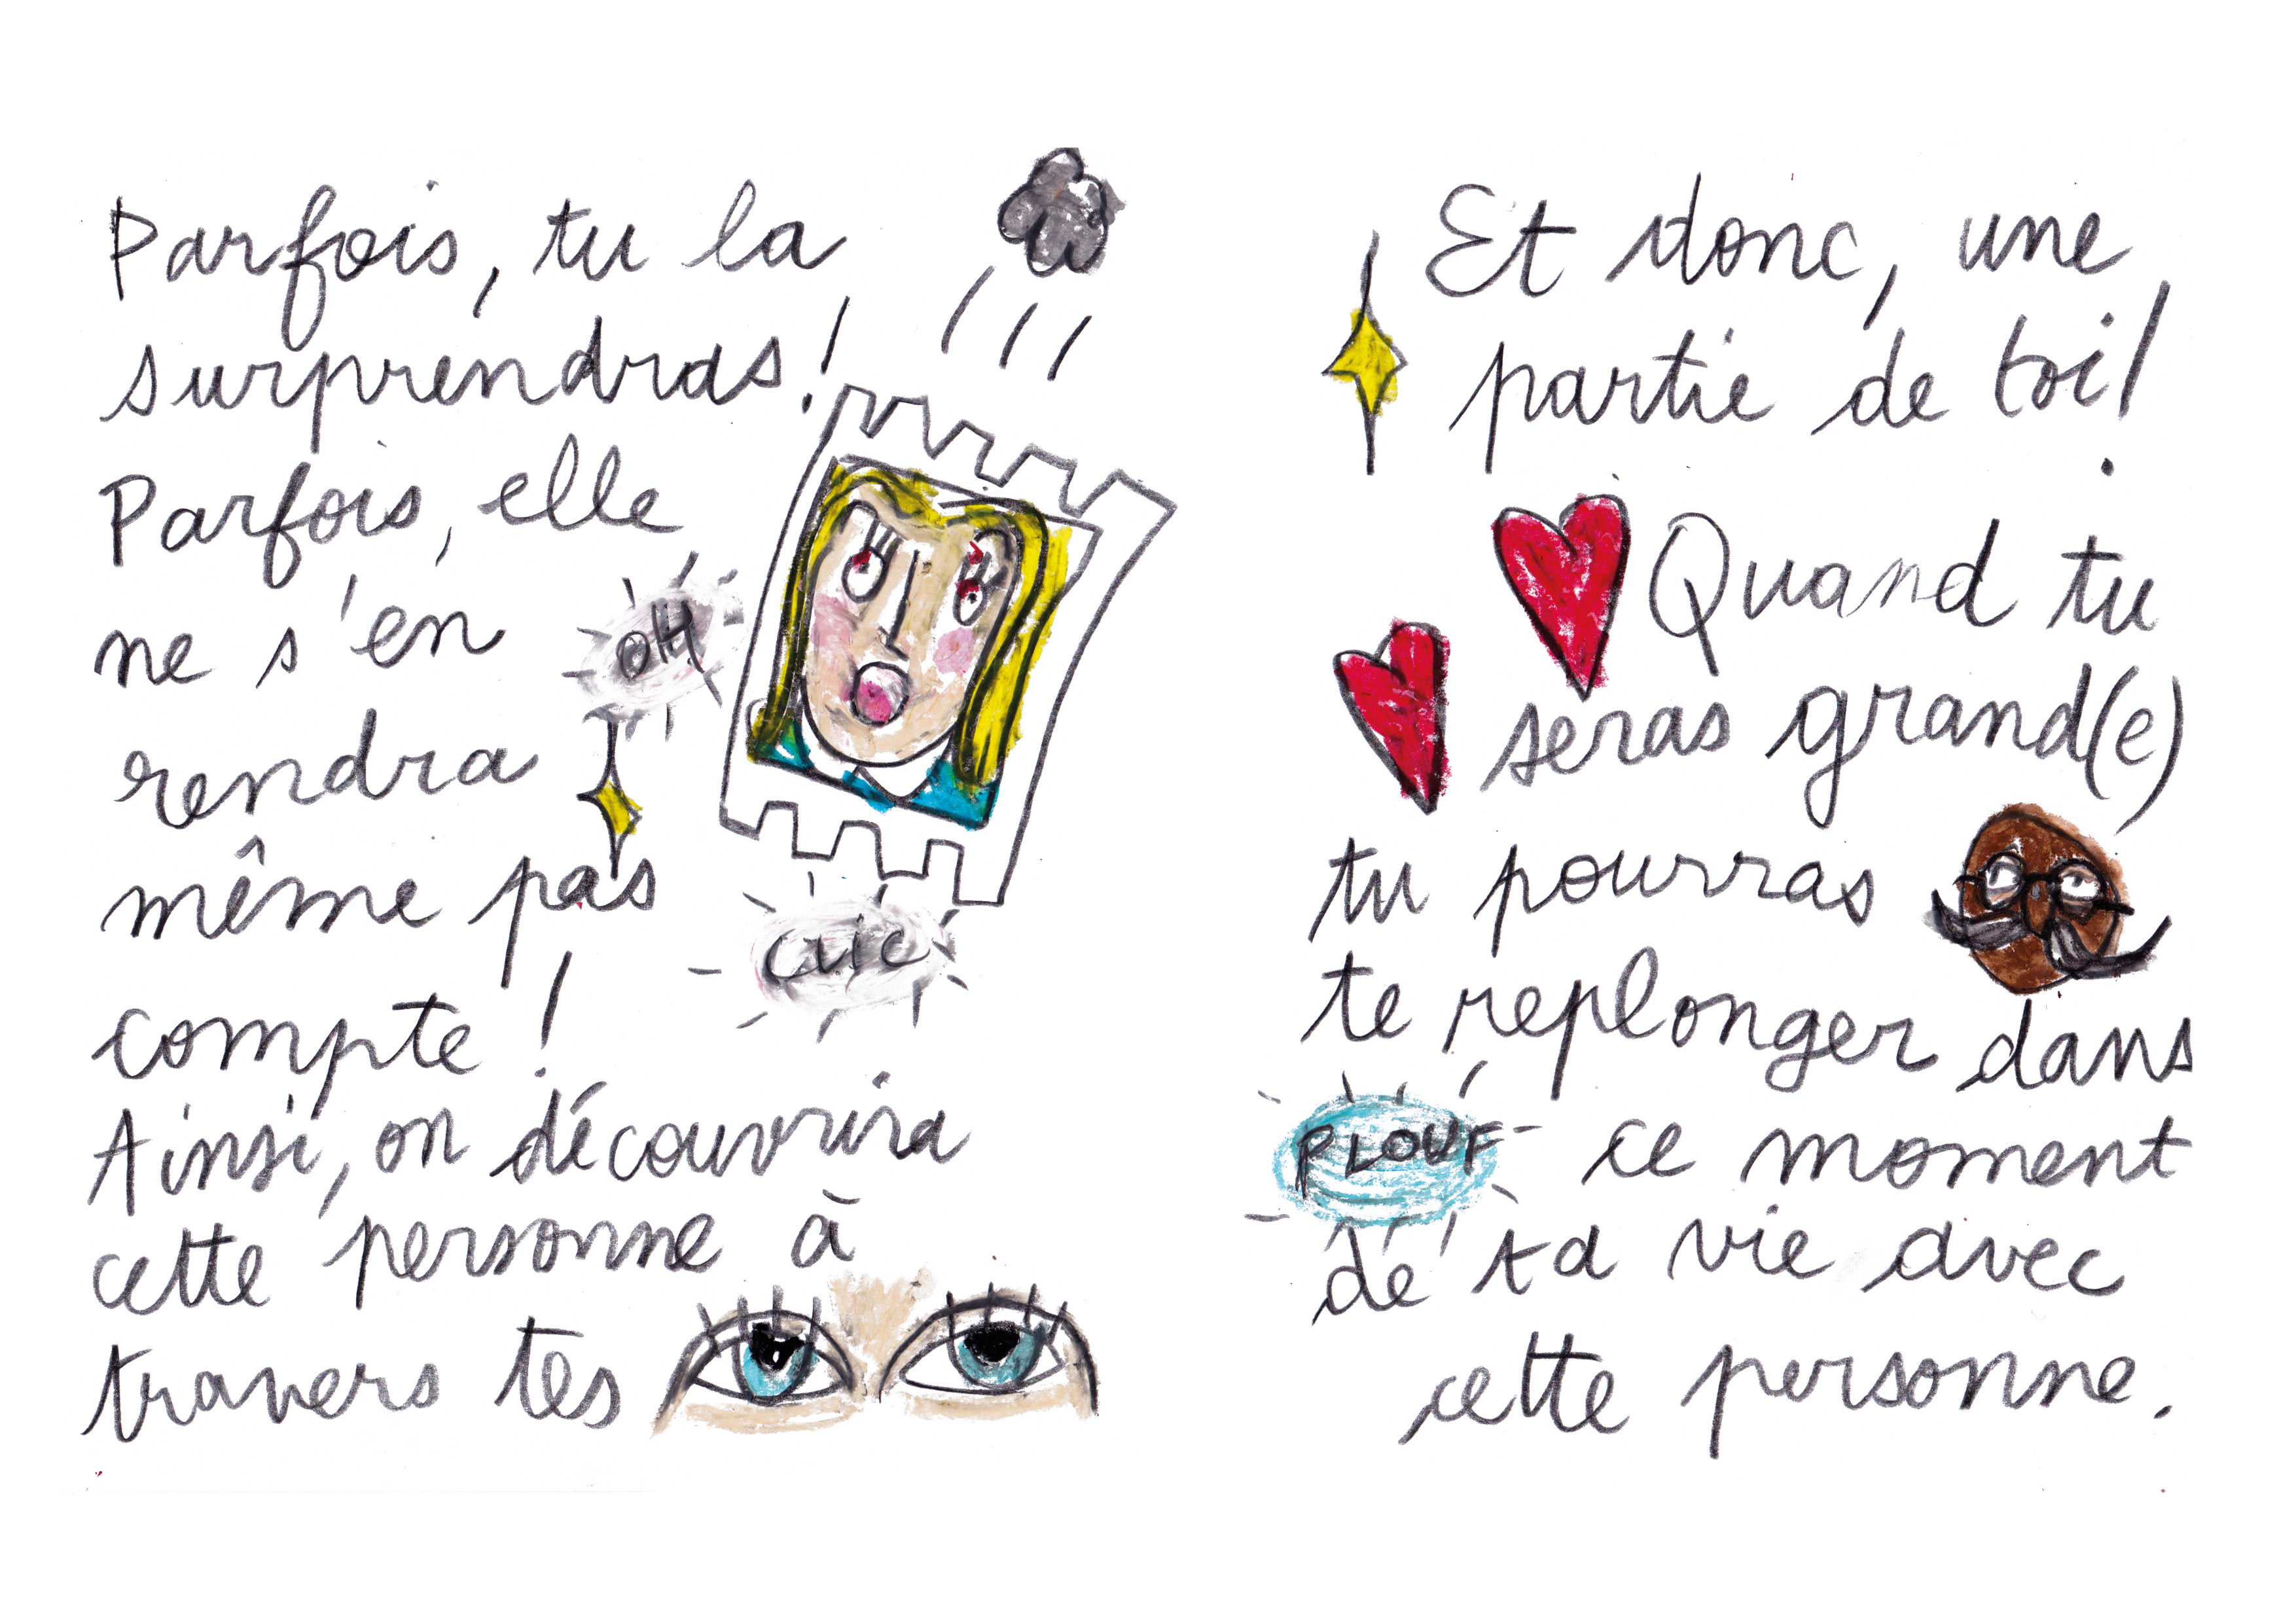 Parfois, tu la
surprendras!
Parfois, elle
ne s'en
OH
rendra
même pas
CLIC
compte!
Ainsi, on découvrira
cette personne à
travers tes
Et donc, une
partie de toi!
Quand tu
seras grand(e)
tu pourras
te replonger dans
PLOUF
ce moment
de ta vie avec
cette personne.